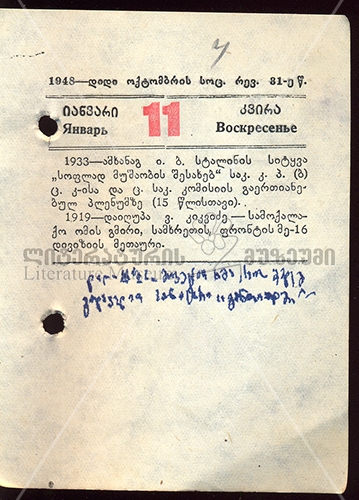 4
1948—დიდი ოქტომბრის სოც. რევ. 31-ე წ.
იანვარი 11 კვირა
Январь Воскресенье
1933—ამხანაგ ი. ბ. სტალინის სიტყვა
„სოფლად მუშაობის შესახებ“ საკ. კ. პ. (ბ)
ც. კ-ისა და ც. საკ. კომისიის გაერთიანე-
ბულ პლენუმზე (15 წლისთავი).
1919—დაიღუპა ვ. კიკვიძე — სამოქალა-
ქო ომის გმირი, სამხრეთის ფრონტის მე-16
დივიზიის მეთაური.
ლიტერატურის მუზეუმი
Literature